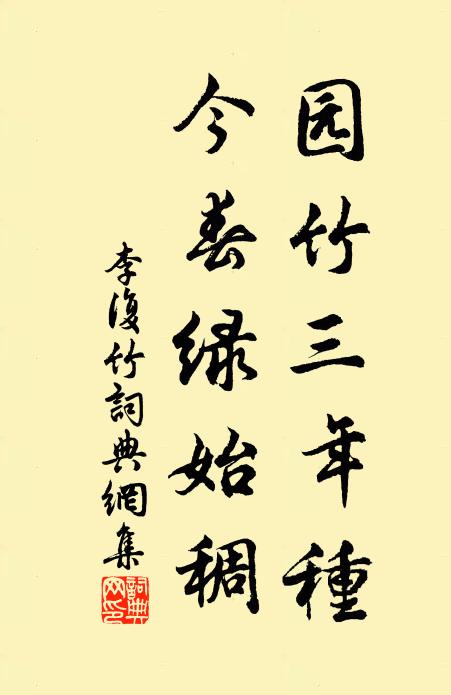 园竹三年種
今春绿始稠
李復竹詞典網集
詞典网印